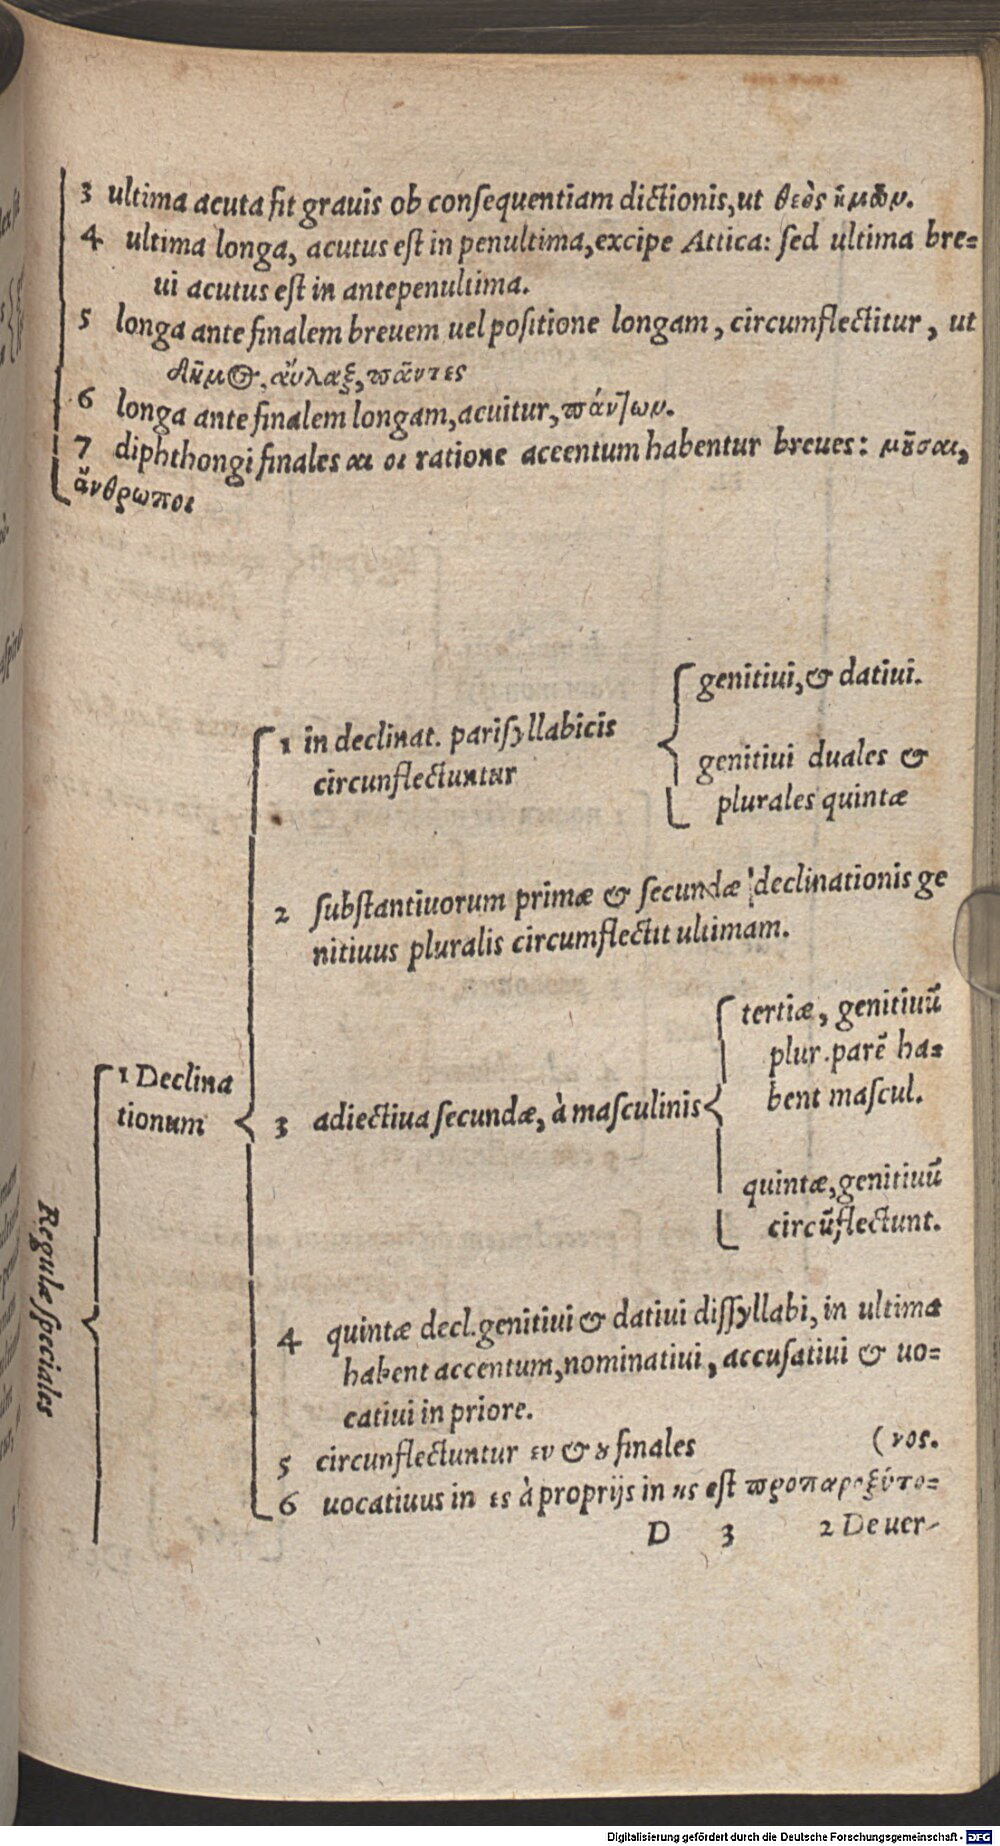 3 ultima acuta fit grauis ob consequentiam dictionis, ut θεὸς ἡμῶν.
4 ultima longa, acutus est in penultima, excipe Attica: sed ultima bre=
ui acutus est in antepenultima.
5 longa ante finalem breuem uel positione longam, circumflectitur, ut
δῆμος, αὖλαξ, πᾶντες
6 longa ante finalem longam, acuitur, πάντων.
7 diphthongi finales αι οι ratione accentum habentur breues: μοῦσαι,
ἄνθρωποι
Regulæ speciales
1 Declina
tionum
1 in declinat. parisyllabicis
circunflectuntur
genitiui, & datiui.
genitiui duales &
plurales quintæ
2 substantiuorum primæ & secundæ declinationis ge
nitiuus pluralis circumflectit ultimam.
3 adiectiua secundæ, à masculinis
tertiæ, genitiuū
plur. parē ha=
bent mascul.
quintæ, genitiuū
circūflectunt.
4 quintæ decl. genitiui & datiui dissyllabi, in ultima
habent accentum, nominatiui, accusatiui & uo=
catiui in priore.
5 circunflectuntur ευ & ου finales (νος.
6 uocatiuus in ες à proprijs in ης est προπαροξύτο=
D 3 2 De uer-
Digitalisierung gefördert durch die Deutsche Forschungsgemeinschaft - DFG